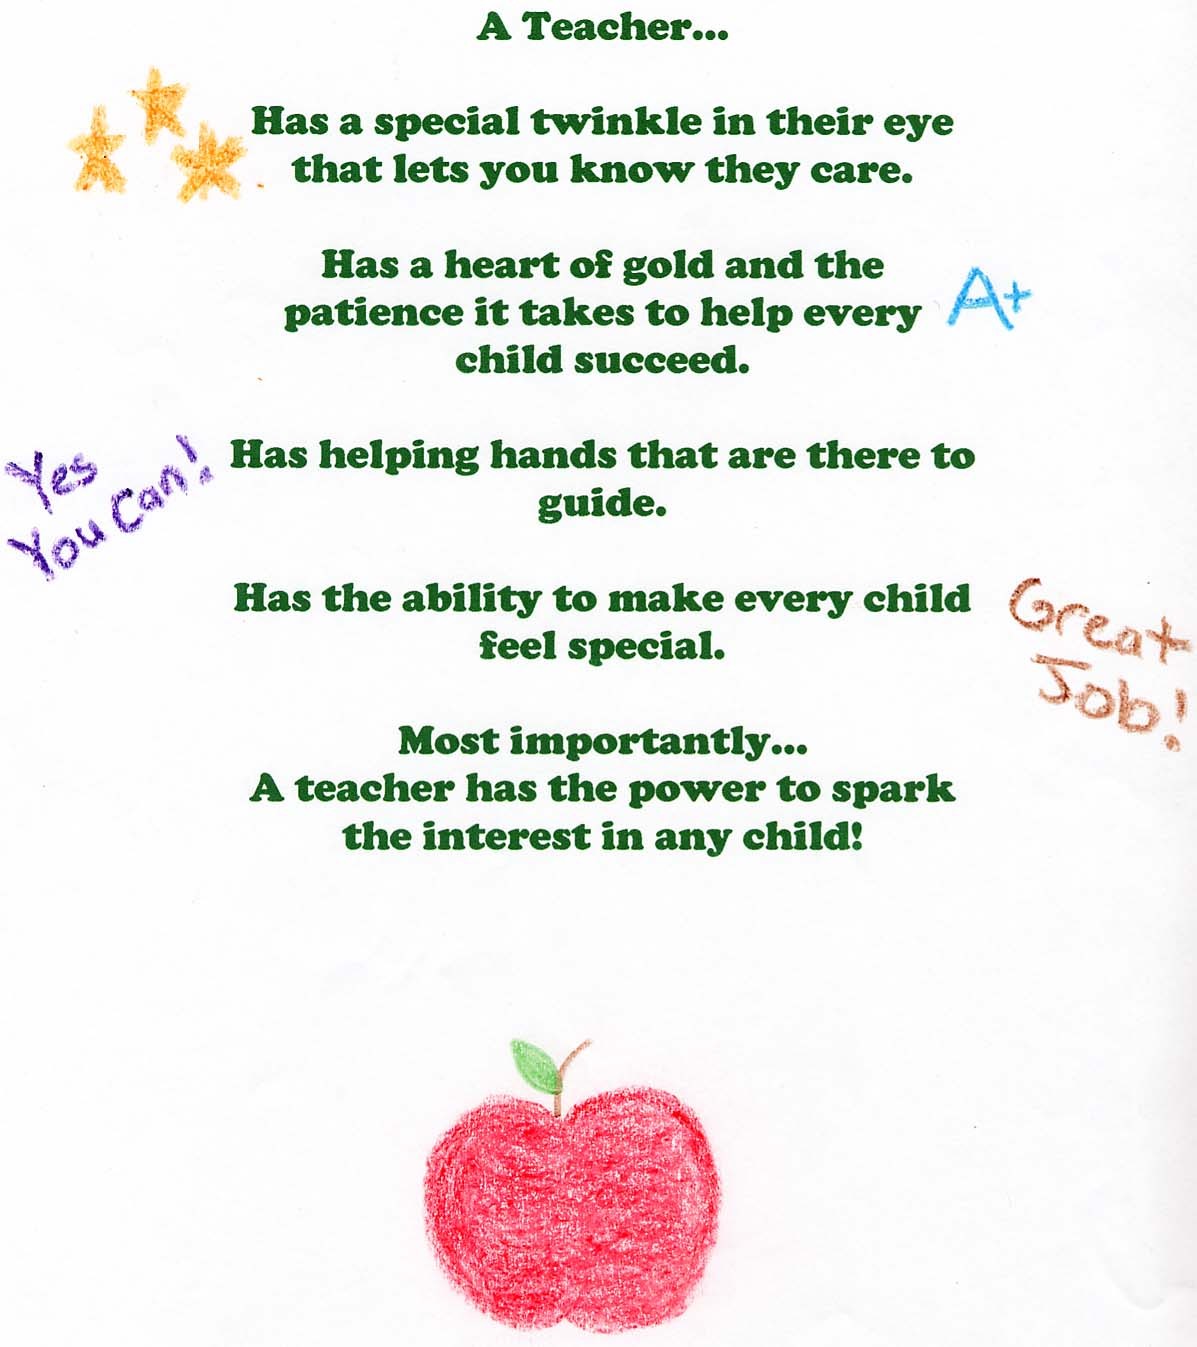 A Teacher...
Has a special twinkle in their eye
that lets you know they care.
Has a heart of gold and the
patience it takes to help every
child succeed.
A+
Has helping hands that are there to
guide.
Yes
You Can!
Has the ability to make every child
feel special.
Great
Job!
Most importantly...
A teacher has the power to spark
the interest in any child!